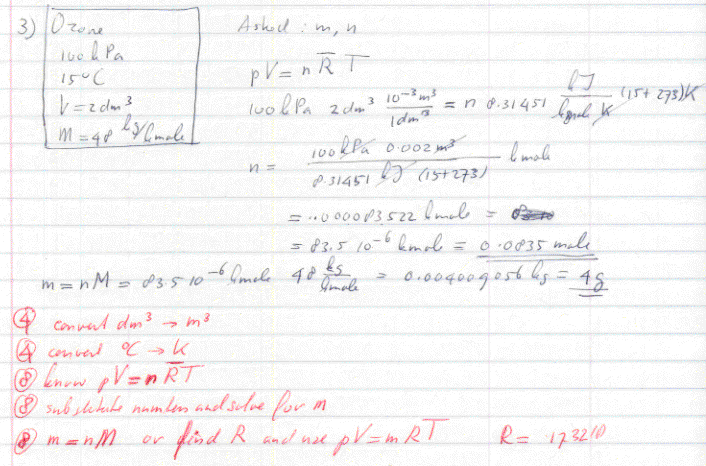 3) Ozone
100 kPa
15°C
V = 2 dm³
M = 48 kg/kmole
Asked : m, n
pV = n R̅ T
100 kPa 2 dm³ 10⁻³ m³ / 1 dm³ = n 8.31451 kJ / kmole K (15 + 273) K
n = 100 kPa 0.002 m³ / 8.31451 kJ (15+273) kmole
= .000083522 kmole =
= 83.5 10⁻⁶ kmole = 0.0835 mole
m = nM = 83.5 10⁻⁶ kmole 48 kg / kmole = 0.004009056 kg = 4 g
④ convert dm³ → m³
④ convert °C → K
⑧ know pV = n R̅T
⑧ substitute numbers and solve for m
⑧ m = nM or find R and use pV = mRT R = .173210